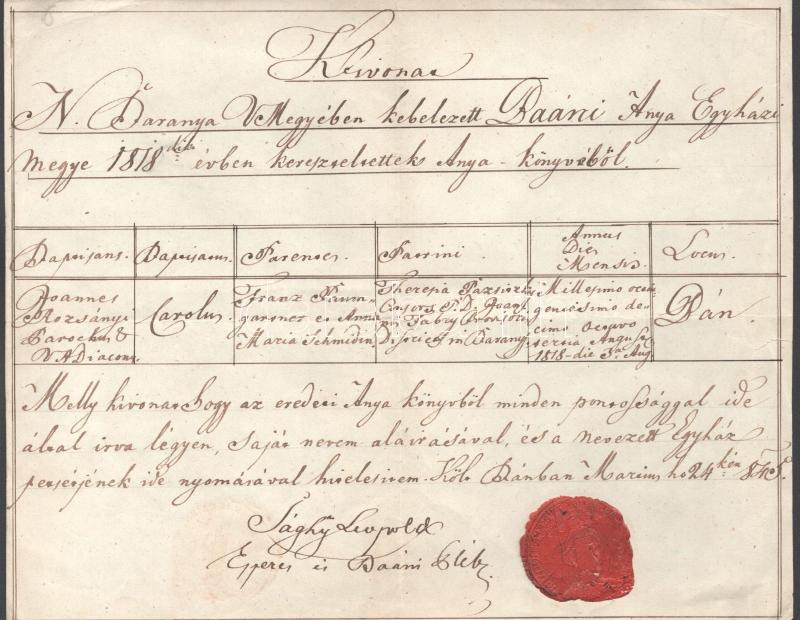 Kivonat
N. Baranya VMegyében kebelezett Baáni Anya Egyházi
Megye 1818dik évben kereszteltettek Anya-könyvéből.
Baptisans. Baptisatus. Parentes. Patrini. Annus Dies Mensis Locus.
Joannes
Rozsányi
Parochus &
V.ADiaconus.
Carolus.
Franz Baum-
gartner et Anna
Maria Schmidin
Theresia
Consors P. D.
Fabry Provisoris
Districti in Barany.
Millesimo octin
gentesimo de-
cimo octavo
tertia Augusti
1818-die 3a Aug
Bán.
Melly kivonat hogy az eredeti Anya könyvből minden pontossággal ide
által irva légyen, saját nevem aláirásával, és a nevezett Egyház
petsétjének ide nyomásával hitelesitem. Költ Bánban Martius hó 24kén
Sághy Leopold
Esperes és Baáni Pléb.